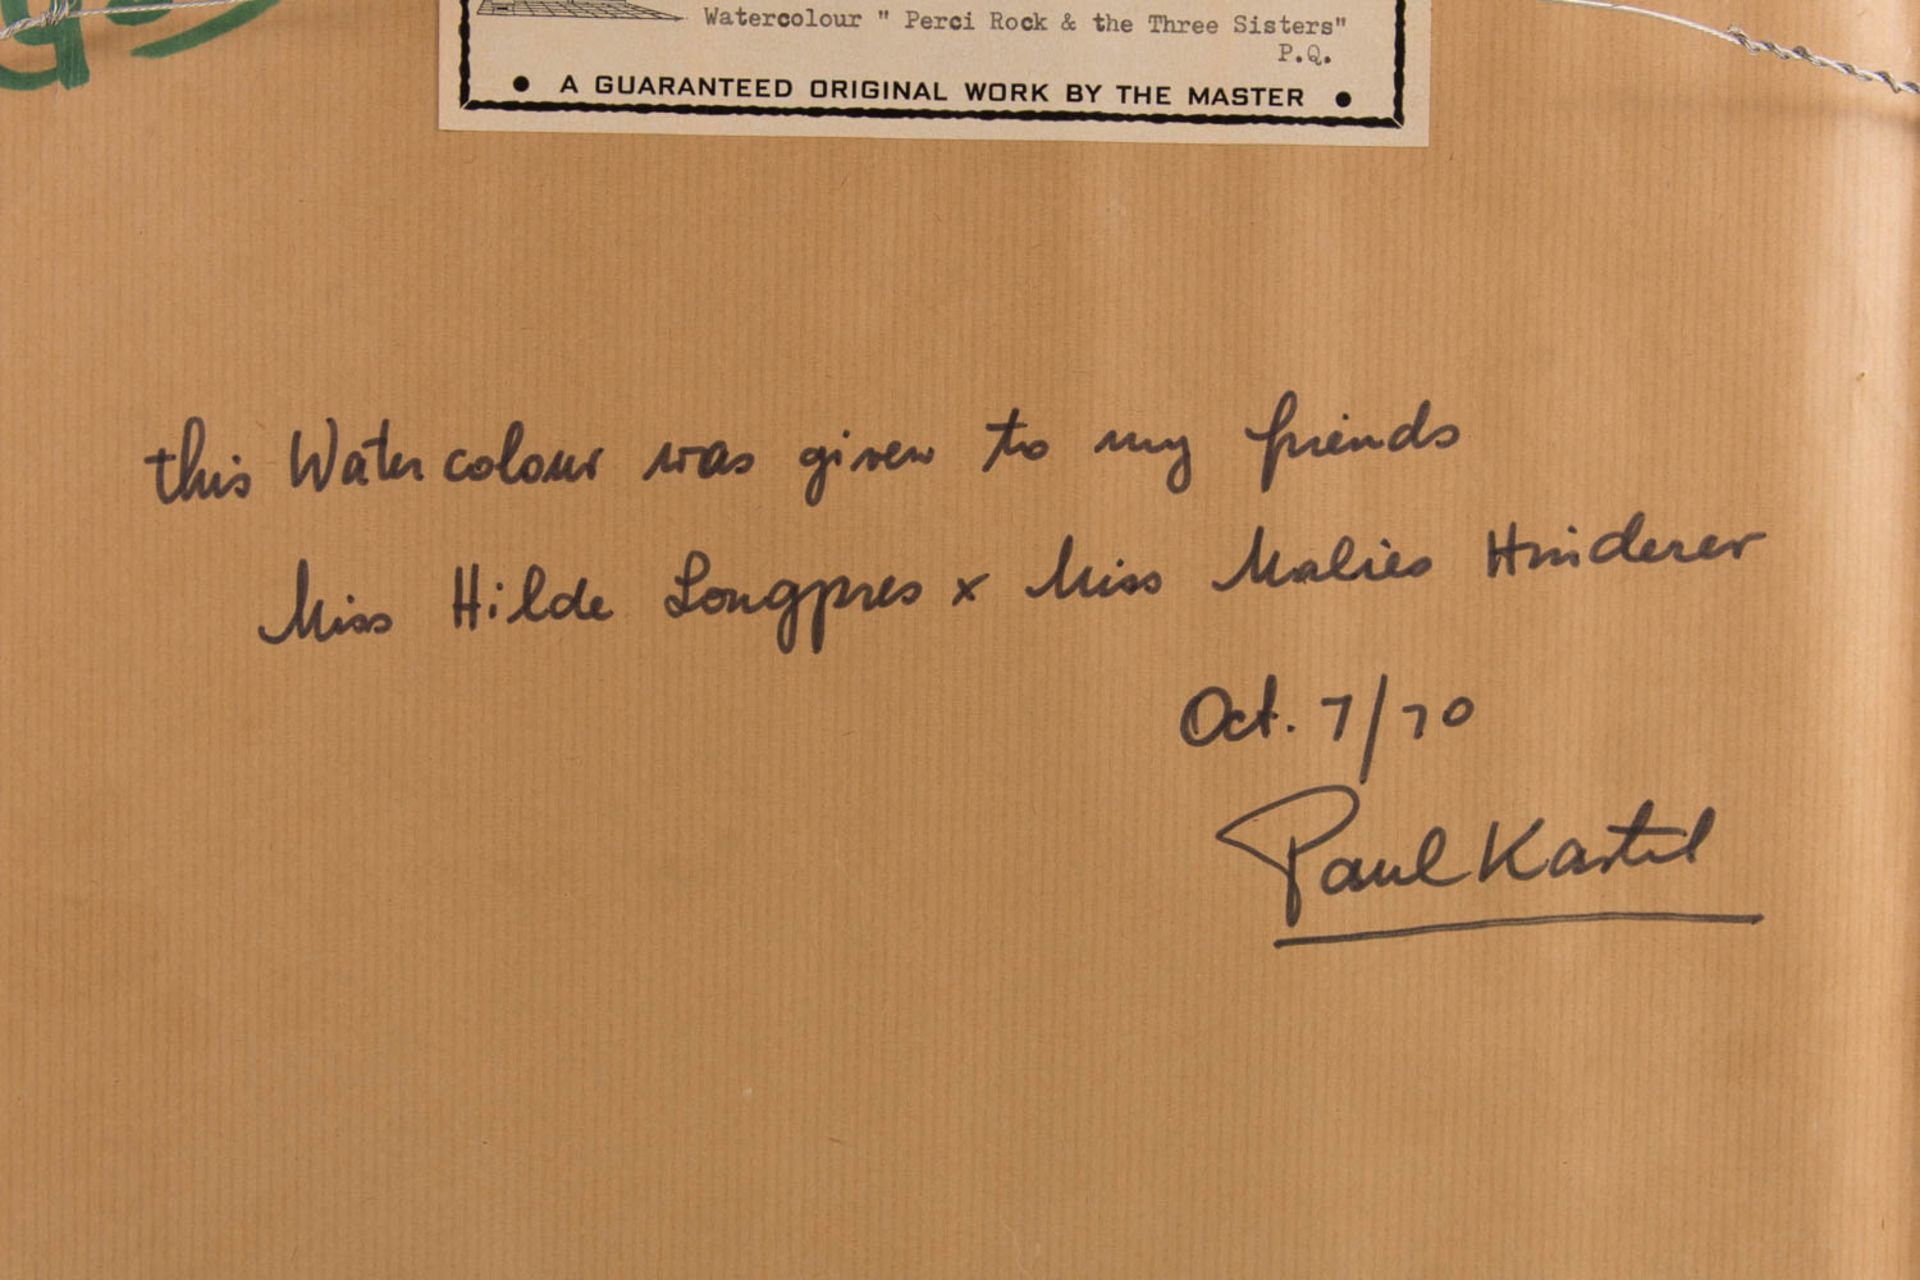 Watercolour " Perci Rock & the Three Sisters"
P.Q.
• A GUARANTEED ORIGINAL WORK BY THE MASTER •
this Watercolour was given to my friends
Miss Hilde Longpres x Miss Malies Hinderer
Oct. 7/70
Paul Kastel